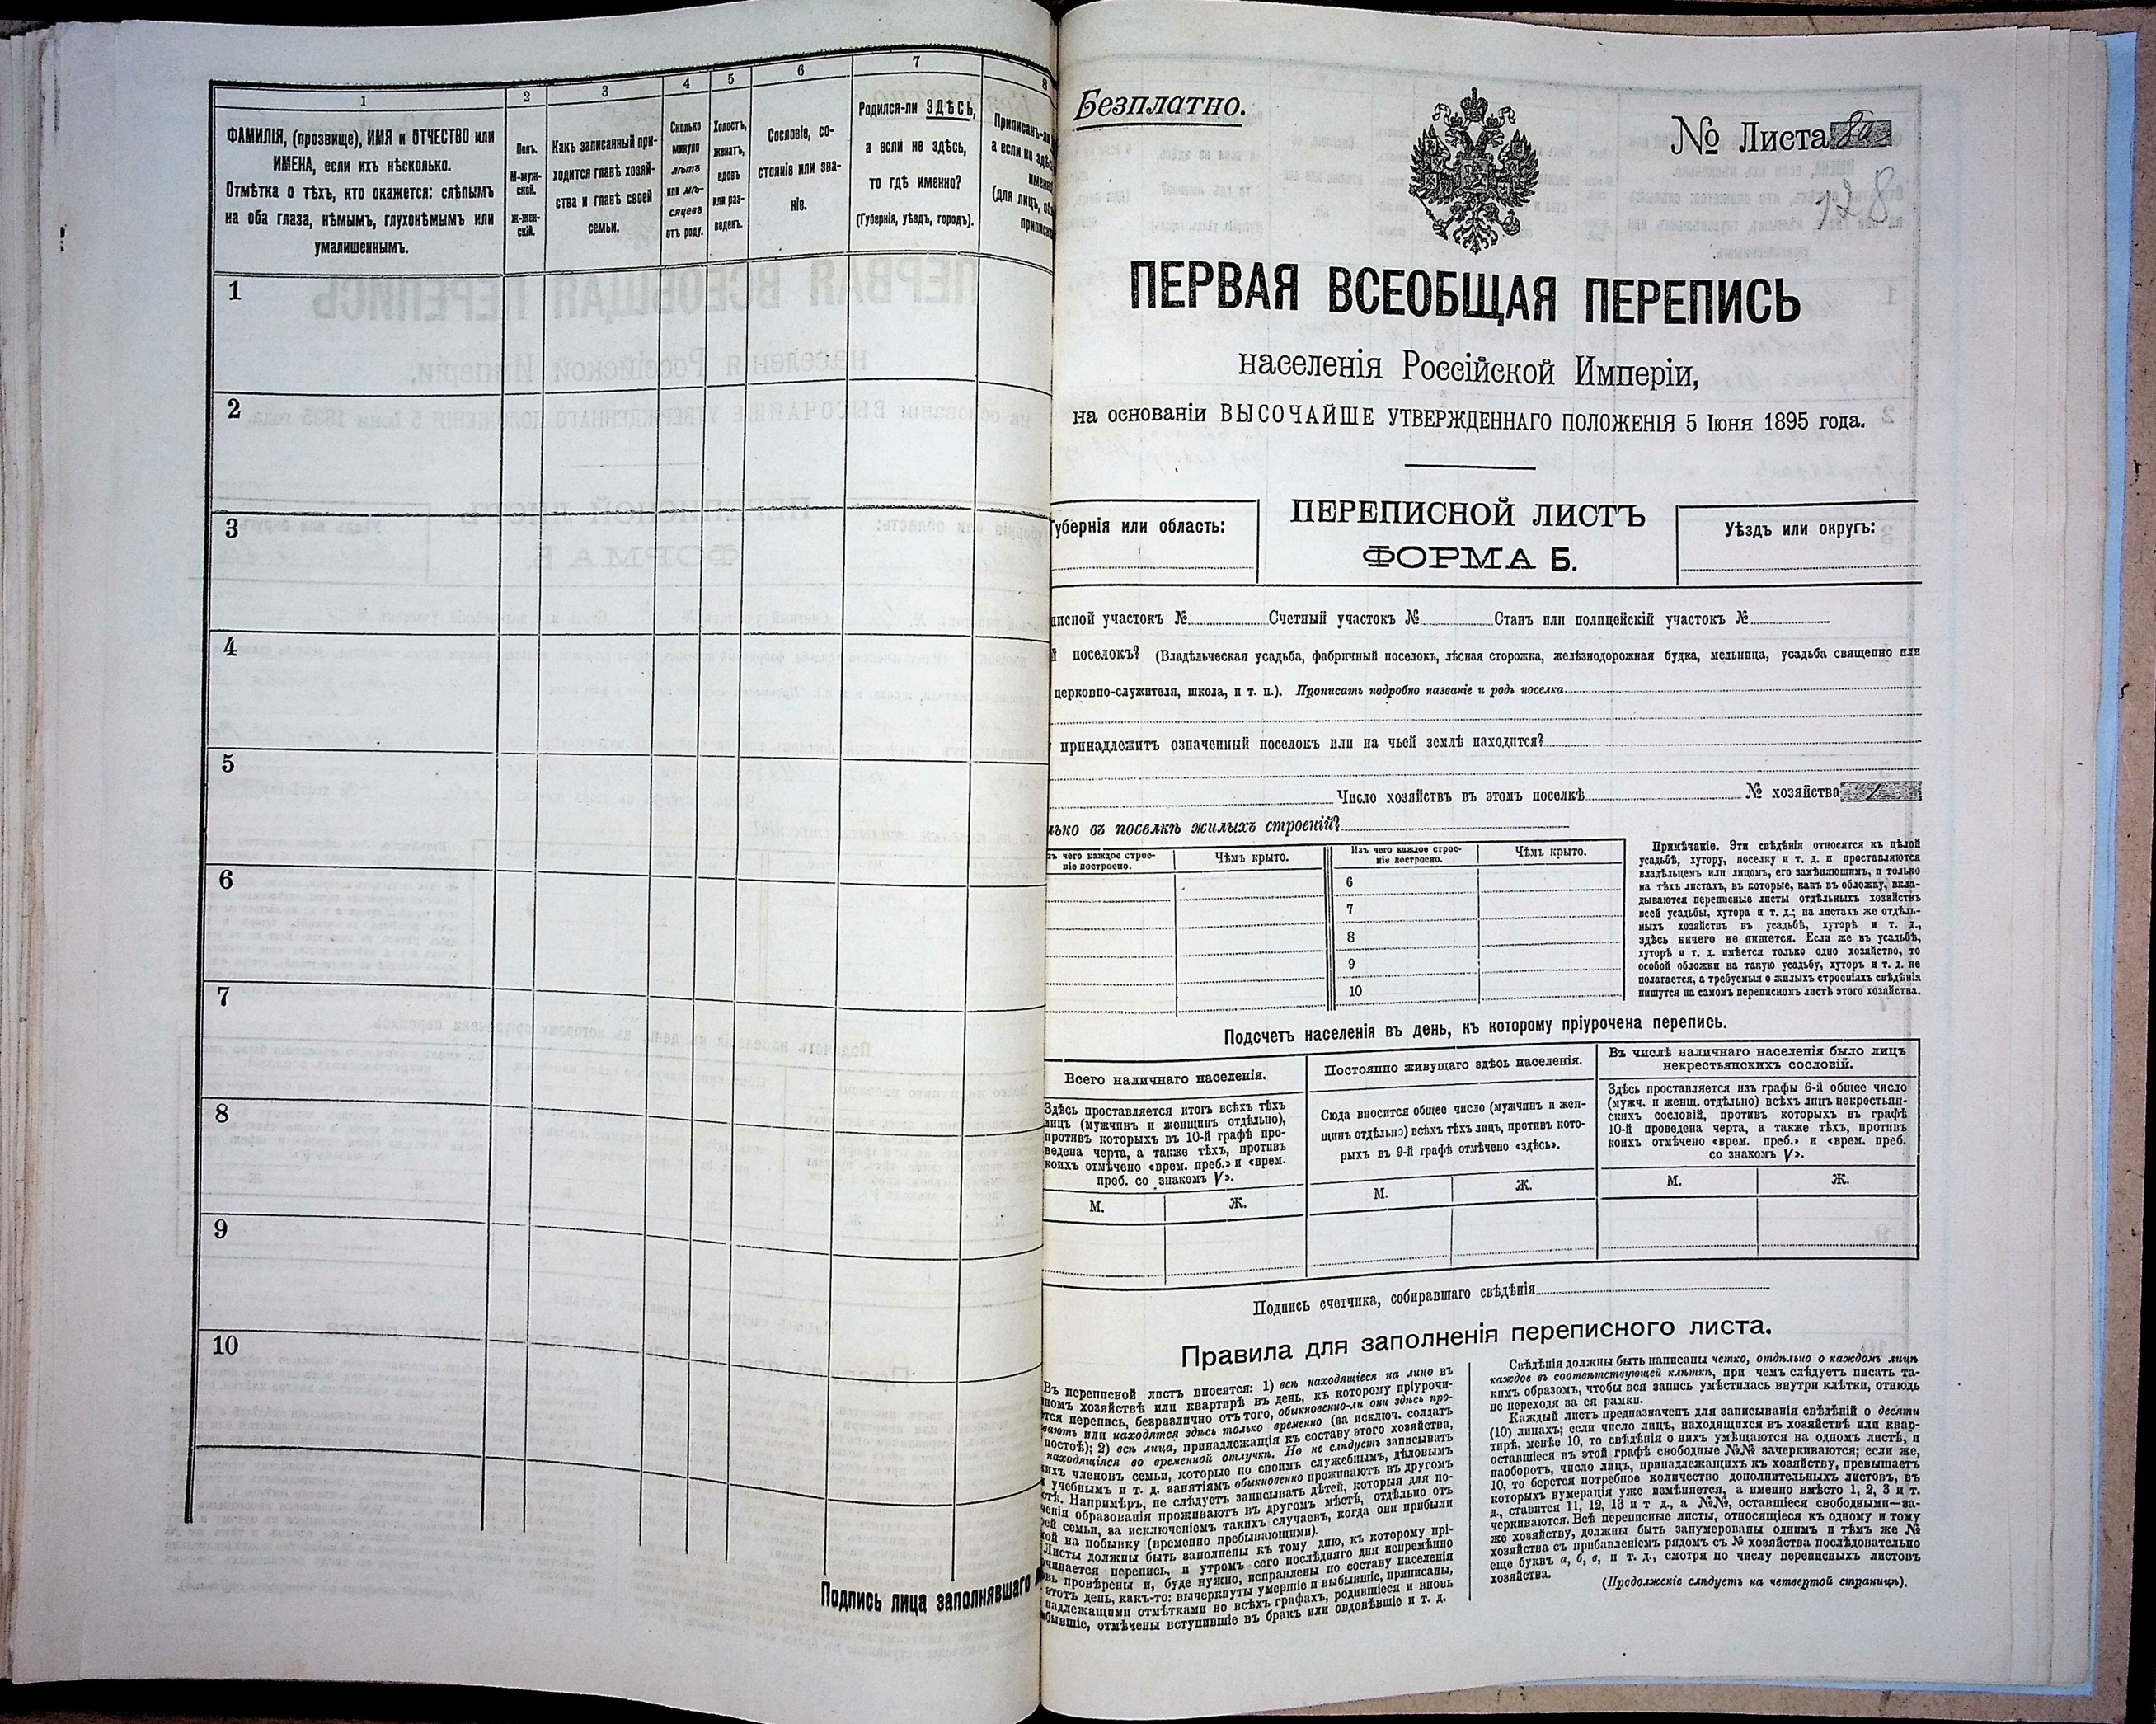 1
2
3
4
5
6
7
8
ФАМИЛІЯ, (прозвище), ИМЯ и ОТЧЕСТВО или
ИМЕНА, если ихъ нѣсколько.
Отмѣтка о тѣхъ, кто окажется: слѣпымъ
на оба глаза, нѣмымъ, глухонѣмымъ или
умалишеннымъ.
Полъ.
М-муж-
ской.
Ж-жен-
скій.
Какъ записанный при-
ходится главѣ хозяй-
ства и главѣ своей
семьи.
Сколько
минуло
лѣтъ
или мѣ-
сяцевъ
отъ роду.
Холостъ,
женатъ,
вдовъ
или раз-
веденъ.
Сословіе, со-
стояніе или зва-
ніе.
Родился-ли ЗДѢСЬ,
а если не здѣсь,
то гдѣ именно?
(Губернія, уѣздъ, городъ).
Приписанъ-ли
а если не здѣ
именно
(для лиц, об
приписк
1
2
3
4
5
6
7
8
9
10
Подпись лица заполнявшаго
Безплатно.
№ Листа 8а
128
ПЕРВАЯ ВСЕОБЩАЯ ПЕРЕПИСЬ
населенія Россійской Имперіи,
на основаніи ВЫСОЧАЙШЕ УТВЕРЖДЕННАГО ПОЛОЖЕНІЯ 5 Іюня 1895 года.
Губернія или область:
ПЕРЕПИСНОЙ ЛИСТЪ
ФОРМА Б.
Уѣздъ или округъ:
писной участокъ № Счетный участокъ № Станъ или полицейскій участокъ №
й поселокъ? (Владѣльческая усадьба, фабричный поселокъ, лѣсная сторожка, желѣзнодорожная будка, мельница, усадьба священно или
церковно-служителя, школа, и т. п.). Прописать подробно названіе и родъ поселка
принадлежитъ означенный поселокъ или на чьей землѣ находится?
Число хозяйствъ въ этомъ поселкѣ № хозяйства 1
лько въ поселкѣ жилыхъ строеній?
зъ чего каждое строе-
ніе построено.
Чѣмъ крыто.
Изъ чего каждое строе-
ніе построено.
Чѣмъ крыто.
6
7
8
9
10
Примѣчаніе. Эти свѣдѣнія относятся къ цѣлой
усадьбѣ, хутору, поселку и т. д. и проставляются
владѣльцемъ или лицомъ, его замѣняющимъ, и только
на тѣхъ листахъ, въ которые, какъ въ обложку, вкла-
дываются переписные листы отдѣльныхъ хозяйствъ
всей усадьбы, хутора и т. д.; на листахъ же отдѣль-
ныхъ хозяйствъ въ усадьбѣ, хуторѣ и т. д.,
здѣсь ничего не пишется. Если же въ усадьбѣ,
хуторѣ и т. д. имѣется только одно хозяйство, то
особой обложки на такую усадьбу, хуторъ и т. д. не
полагается, а требуемыя о жилыхъ строеніяхъ свѣдѣнія
пишутся на самомъ переписномъ листѣ этого хозяйства.
Подсчетъ населенія въ день, къ которому пріурочена перепись.
Всего наличнаго населенія.
Постоянно живущаго здѣсь населенія.
Въ числѣ наличнаго населенія было лицъ
некрестьянскихъ сословій.
Здѣсь проставляется итогъ всѣхъ тѣхъ
лицъ (мужчинъ и женщинъ отдѣльно),
противъ которыхъ въ 10-й графѣ про-
ведена черта, а также тѣхъ, противъ
коихъ отмѣчено «врем. преб.» и «врем.
преб. со знакомъ V».
Сюда вносится общее число (мужчинъ и жен-
щинъ отдѣльно) всѣхъ тѣхъ лицъ, противъ кото-
рыхъ въ 9-й графѣ отмѣчено «здѣсь».
Здѣсь проставляется изъ графы 6-й общее число
(мужч. и женщ. отдѣльно) всѣхъ лицъ некрестьян-
скихъ сословій, противъ которыхъ въ графѣ
10-й проведена черта, а также тѣхъ, противъ
коихъ отмѣчено «врем. преб.» и «врем. преб.
со знакомъ V».
М.
Ж.
М.
Ж.
М.
Ж.
Подпись счетчика, собиравшаго свѣдѣнія
Правила для заполненія переписного листа.
Въ переписной листъ вносятся: 1) всѣ находящіеся на лицо въ
номъ хозяйствѣ или квартирѣ въ день, къ которому пріурочи-
тся перепись, безразлично отъ того, обыкновенно-ли они здѣсь про-
ваютъ или находятся здѣсь только временно (за исключ. солдатъ
постоѣ); 2) всѣ лица, принадлежащія къ составу этого хозяйства,
находящіяся во временной отлучкѣ. Но не слѣдуетъ записывать
ихъ членовъ семьи, которые по своимъ служебнымъ, дѣловымъ
учебнымъ и т. д. занятіямъ обыкновенно проживаютъ въ другомъ
стѣ. Напримѣръ, не слѣдуетъ записывать дѣтей, которыя для по-
ченія образованія проживаютъ въ другомъ мѣстѣ, отдѣльно отъ
ей семьи, за исключеніемъ такихъ случаевъ, когда они прибыли
ой на побывку (временно пребывающими).
Листы должны быть заполнены къ тому дню, къ которому прі-
чивается перепись, и утромъ сего послѣдняго дня непремѣнно
ть провѣрены и, буде нужно, исправлены по составу населенія
этотъ день, какъ-то: вычеркнуты умершіе и выбывшіе, приписаны,
надлежащими отмѣтками во всѣхъ графахъ, родившіеся и вновь
бывшіе, отмѣчены вступившіе въ бракъ или овдовѣвшіе и т. д.
Свѣдѣнія должны быть написаны четко, отдѣльно о каждомъ лицѣ
каждое въ соотвѣтствующей клѣткѣ, при чемъ слѣдуетъ писать та-
кимъ образомъ, чтобы вся запись умѣстилась внутри клѣтки, отнюдь
не переходя за ея рамки.
Каждый листъ предназначенъ для записыванія свѣдѣній о десяти
(10) лицахъ; если число лицъ, находящихся въ хозяйствѣ или квар-
тирѣ, менѣе 10, то свѣдѣнія о нихъ умѣщаются на одномъ листѣ, и
оставшіеся въ этой графѣ свободные №№ зачеркиваются; если же,
наоборотъ, число лицъ, принадлежащихъ къ хозяйству, превышаетъ
10, то берется потребное количество дополнительныхъ листовъ, въ
которыхъ нумерація уже измѣняется, а именно вмѣсто 1, 2, 3 и т.
д., ставится 11, 12, 13 и т д., а №№, оставшіеся свободными—за-
черкиваются. Всѣ переписные листы, относящіеся къ одному и тому
же хозяйству, должны быть занумерованы однимъ и тѣмъ же №
хозяйства съ прибавленіемъ рядомъ съ № хозяйства послѣдовательно
еще буквъ а, б, в, и т. д., смотря по числу переписныхъ листовъ
хозяйства.
(Продолженіе слѣдуетъ на четвертой страницѣ).